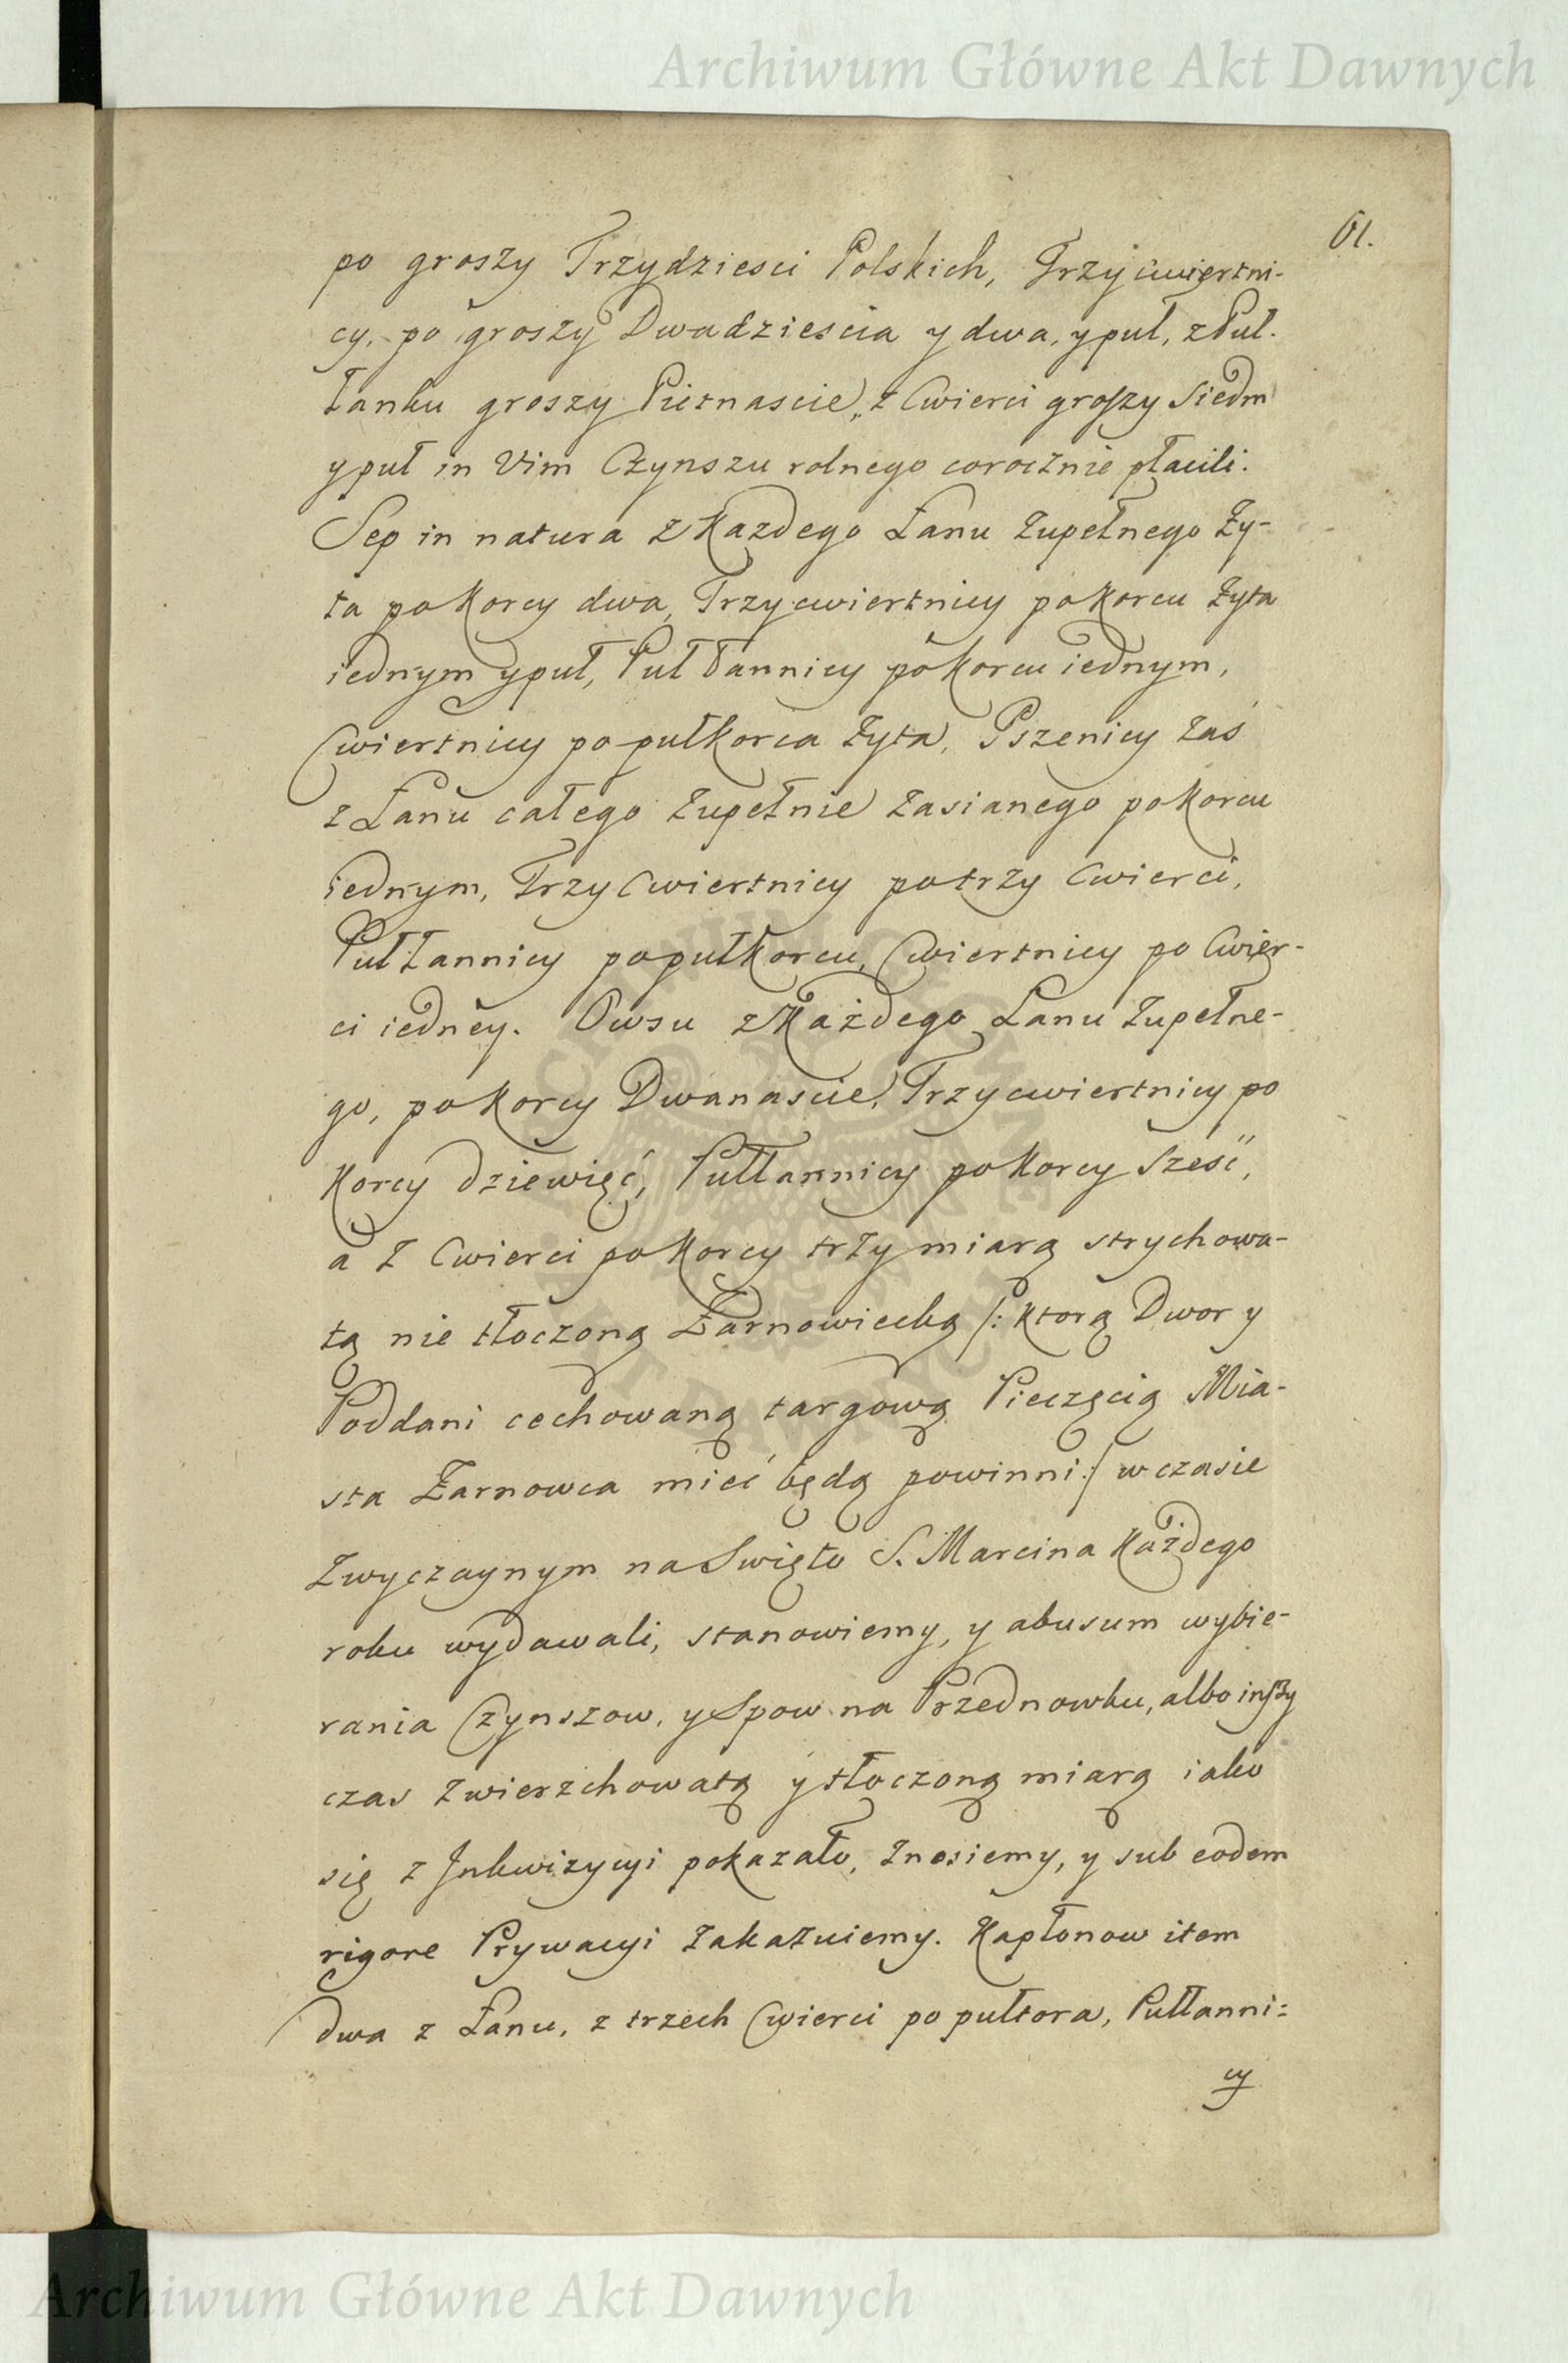 Archiwum Główne Akt Dawnych
61.
po groszy Trzydziesci Polskich, Trzycwiertni-
cy, po groszy Dwadziescia y dwa, y puł, z Puł-
łanku groszy Pietnascie, z Cwierci groszy Siedm
y puł in Vim Czynszu rolnego corocznie płacili.
Sep in natura z Każdego Łanu Zupełnego Zy-
ta po Korcy dwa, Trzycwiertnicy po Korcu Zyta
iednym y puł, Puł Łannicy po Korcu iednym,
Cwiertnicy po pułkorca Zyta, Pszenicy Zaś
z Łanu całego Zupełnie Zasianego po Korcu
iednym, Trzy Cwiertnicy po trzy Cwierci,
Puł Łannicy po pułkorcu, Cwiertnicy po Cwier-
ci iedney. Owsu z Każdego Łanu Zupełne-
go, po Korcy Dwanascie, Trzycwiertnicy po
Korcy dziewięć, Pułłannicy po Korcy Sześć,
a z Cwierci po Korcy trzy miarą strychowa-
tą nie tłoczoną Żarnowiecką /: Ktorą Dwor y
Poddani cechowaną targową Pieczęcią Mia-
sta Żarnowca mieć będą powinni :/ w czasie
Zwyczaynym na Swięto S. Marcina Każdego
roku wydawali, stanowiemy, y abusum wybie-
rania Czynszow, y Spow na Przednowku, albo inszy
czas Zwierzchowatą y tłoczoną miarą iako
się z Inkwizycyi pokazało, Znosiemy, y sub eodem
rigore Prywacyi Zakazuiemy. Kapłonow item
dwa z Łanu, z trzech Cwierci po pułtora, Pułłanni-
cy
Archiwum Główne Akt Dawnych